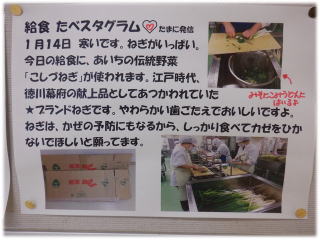 給食 たべスタグラム♡たまに発信
1月14日 寒いです。ねぎがいっぱい。
今日の給食に、あいちの伝統野菜
「こしづねぎ」が使われます。江戸時代、
徳川幕府の献上品としてあつかわれていた
★ブランドねぎです。やわらかい歯ごたえでおいしいですよ。
ねぎは、かぜの予防にもなるから、しっかり食べてカゼをひか
ないでほしいと願ってます。
みそにこみうどんに
はいるよ